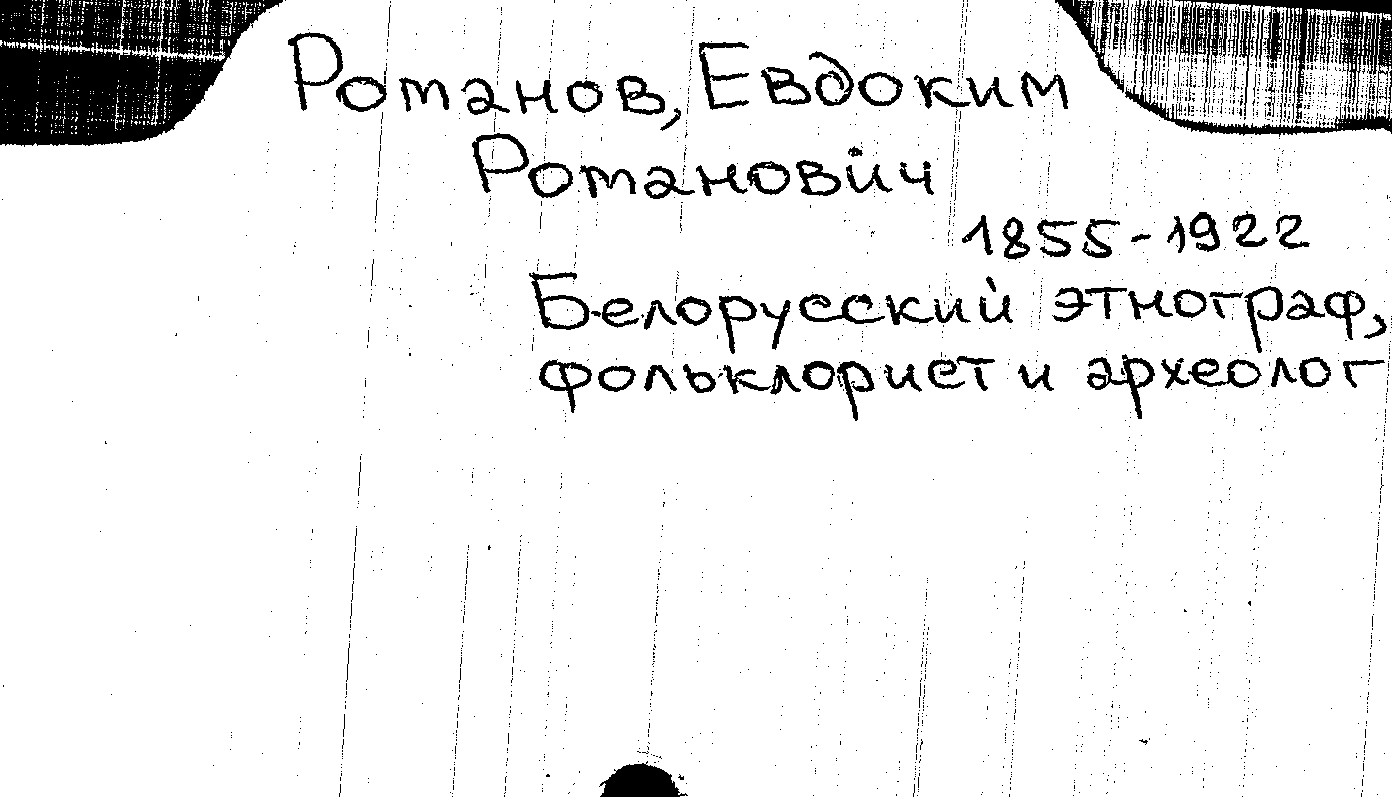 Романов, Евдоким
Романович
1855-1922
Белорусский этнограф,
фольклорист и археолог